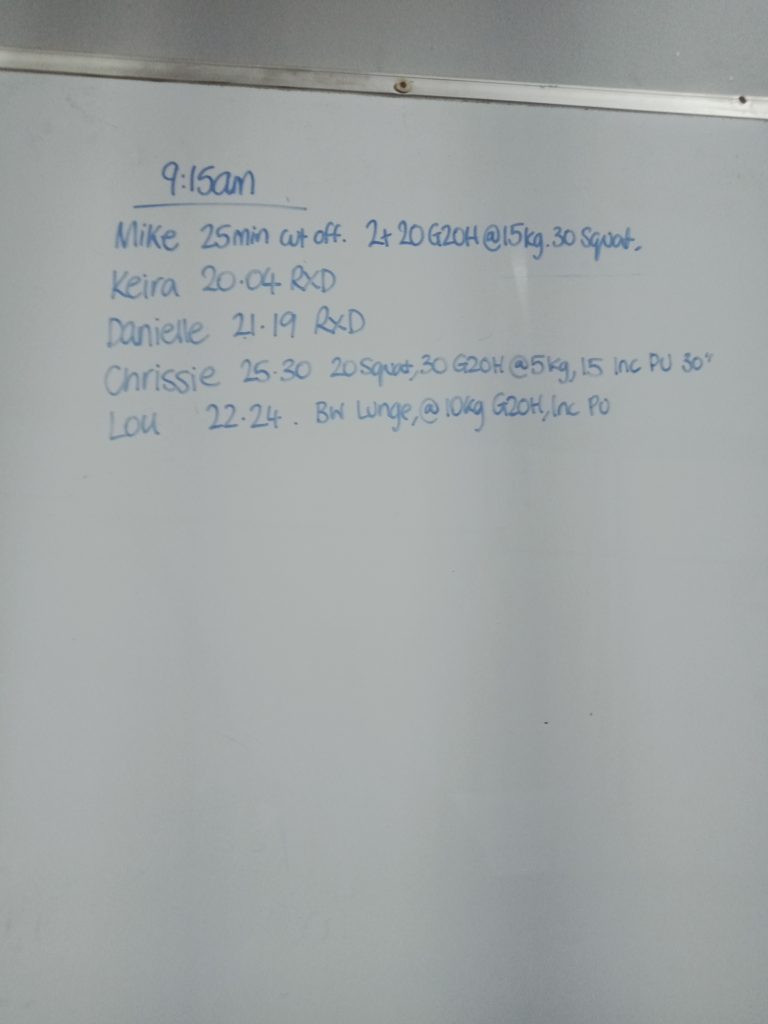 9:15am
Mike 25min cut off. 2+ 20 G2OH @15kg. 30 Squat.
Keira 20.04 RXD
Danielle 21.19 RXD
Chrissie 25.30 20 Squat, 30 G2OH @5kg, 15 Inc PU 30"
Lou 22.24. BW Lunge, @ 10kg G2OH, Inc PU